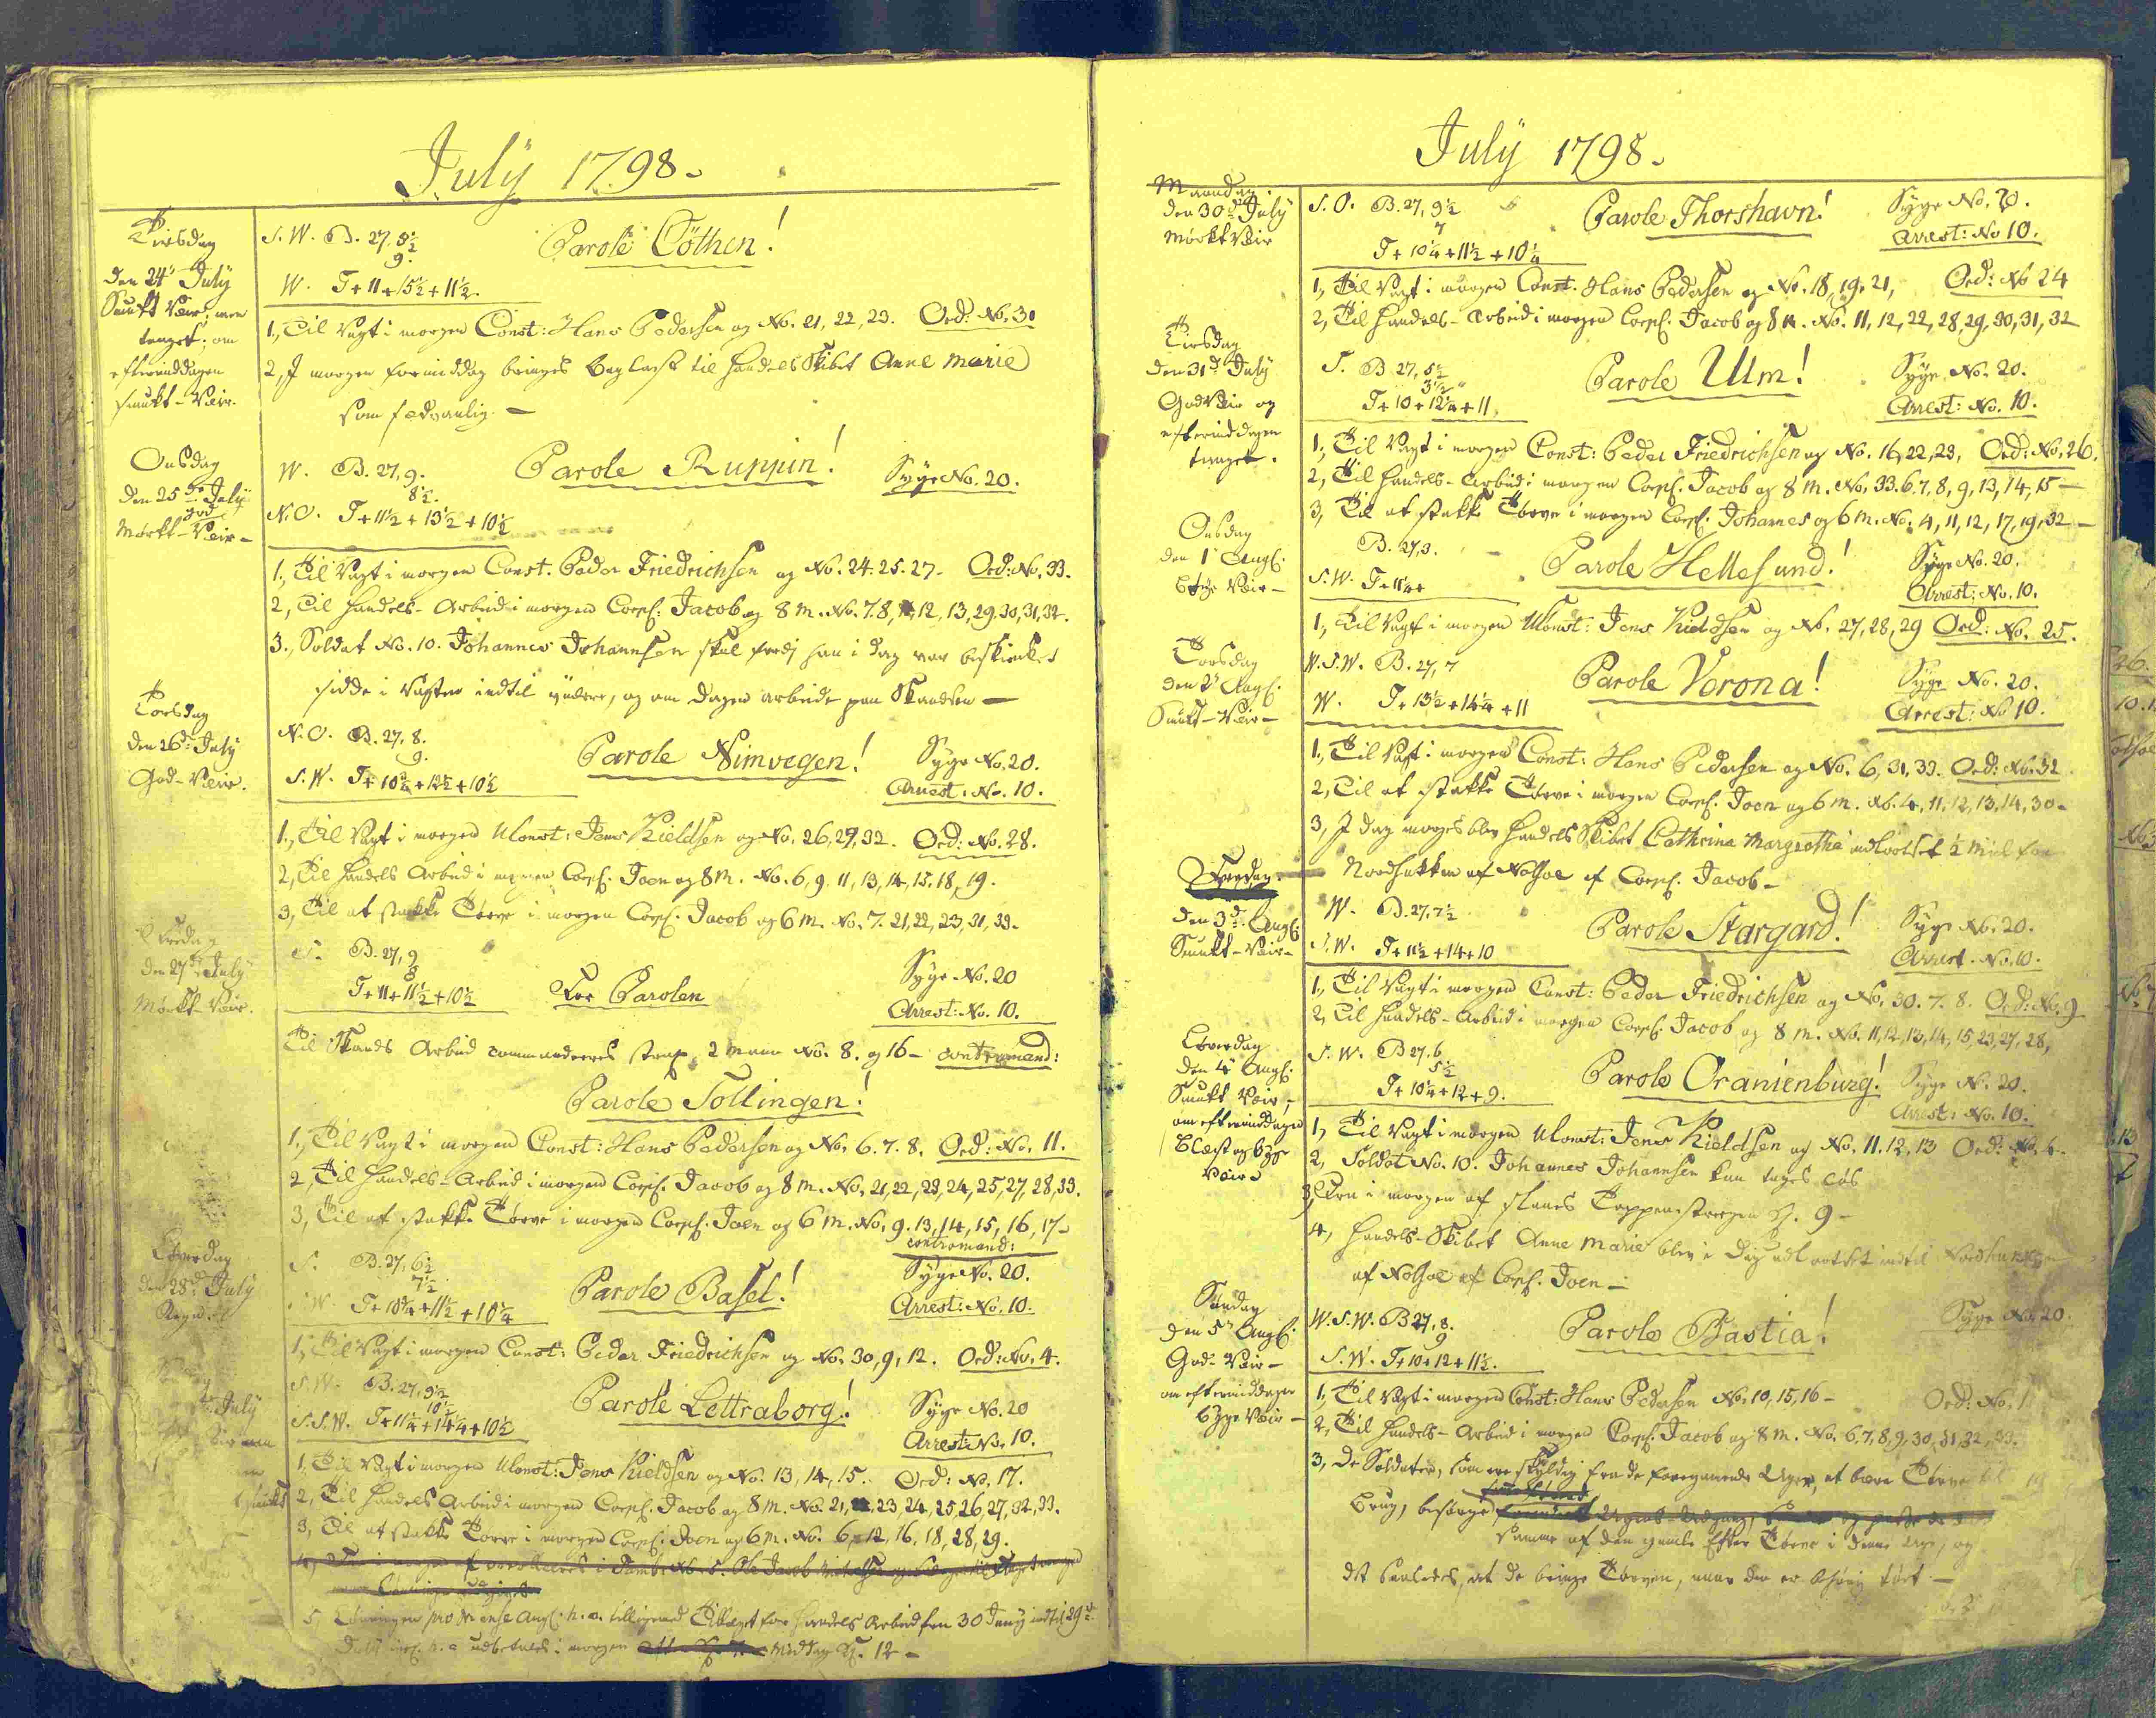 July 1798.
Tirsdag
den 24 July
Smukt Veir, men
taaget; om
eftermiddagen
smukt-Veir.
S. W. B. 27, 8½
9.
W. T+11+15½+11½.
Parole Cöthen!
1, Til Vagt i morgen Const: Hans Pedersen og No. 21, 22, 23. Ord: No. 31
2, I morgen formiddag bringes Baglast til Handels Skibet Anne Marie
som sædvanlig. —
Onsdag
den 25de July
god
Mørkt-Veir-
W. B. 27, 9.
8½.
N. O. T+11½+13½+10½
Parole Ruppin!
Syge No. 20.
1, Til Vagt i morgen Const. Peder Friedrichsen og No. 24. 25. 27. Ord: No. 33.
2, Til Handels-Arbeid i morgen Corpl. Jacob og 8 m. No. 7. 8, 12, 13, 29, 30, 31, 32.
3., Soldat No. 10. Johannes Johannsen skal fordj han i dag var beskienket
sidde i Vagten indtil videre, og om dagen arbeide paa Skandsen —
Torsdag
den 26de July
God-Veir.
N. O. B. 27, 8.
9.
S. W. T+10¾+12½+10½
Parole Nimvegen!
Syge No. 20.
Arrest: No. 10.
1, Til Vagt i morgen UConst: Jens Kieldsen og No. 26, 29, 32. Ord: No. 28.
2, Til Handels Arbeid i morgen Corpl. Joen og 8 M. No. 6, 9, 11, 13, 14, 15, 18, 19.
3, Til at stakke Törve i morgen Corpl. Jacob og 6 M. No. 7. 21, 22, 23, 31, 33.
Fredag
den 27de July
Mørkt-Veir.
S. B. 27, 9
8
T+11+11½+10½
Før Parolen
Syge No. 20
Arrest: No. 10.
Til Skands Arbeid commanderes strax 2 Mann No. 8. og 16 - contramand:
Parole Sollingen!
1, Til Vagt i morgen Const: Hans Pedersen og No. 6. 7. 8. Ord: No. 11.
2, Til Handels-Arbeid i morgen Corpl. Jacob og 8 m. No. 21, 22, 23, 24, 25, 27, 28, 33.
3, Til at stakke Törve i morgen Corpl. Joen og 6 m. No. 9. 13, 14, 15, 16, 17-
contramand:
Løverdag
den 28de July
S. B. 27, 6½
7½
W. T+10¾+11½+10¼
Parole Basel!
Syge No. 20.
Arrest: No. 10.
1, Til Vagt i morgen Const: Peder Friedrichsen og No. 30, 9, 12. Ord: No. 4.
July
S. W. B. 27, 9½
10½
S. S. W. T+11¼+14¼+10½
Parole Lettraborg!
Syge No. 20
Arrest: No. 10.
1, Til Vagt i morgen UConst: Jens Kieldsen og No. 13, 14, 15. Ord: No. 17.
2, Til Handels Arbeid i morgen Corpl. Jacob og 8 M. No. 21, 23, 24, 25, 26, 27, 32, 33.
3, Til at stakke Törve i morgen Corpl. Joen og 6 m. No. 6, 12, 16, 18, 28, 29.
5, Lønningen pro Mense Augl: h. a. tilligemed Tillæget for Handels Arbeid fra 30 Juny indtil 29de
July incl. h. a udbetales i morgen Middag Kl. 12 -
July 1798.
Mandag
den 30de July
Mørkt Veir
S. O. B. 27, 9½
7
T+10¼+11½+10¼
Parole Thorshavn!
Syge No. 20.
Arrest: No 10.
1, Til Vagt i morgen Const. Hans Pedersen og No. 18, 19, 21, Ord: No 24
2, Til Handels-Arbeid i morgen Corpl. Jacob og 8 M. No. 11, 12, 22, 28, 29, 30, 31, 32
Tirsdag
den 31de July
God Veir og
eftermiddagen
taaget.
S. B 27, 5½
3½
T+10+12¼+11.
Parole Ulm!
Syge No. 20.
Arrest: No. 10.
1, Til Vagt i morgen Const: Peder Friedrichsen og No. 16, 22, 23, Ord: No. 26.
2, Til Handels-Arbeid i morgen Corpl. Jacob og 8 M. No. 33. 6. 7, 8, 9, 13, 14, 15 —
3, Til at stakke Törve i morgen Corpl. Johannes og 6 m. No. 4, 11, 12, 17, 19, 32 —
Onsdag
den 1 Augl.
Byge Veir -
B. 27, 3.
S. W. T+11¼+
Parole Hellesund!
Syge No. 20.
Arrest: No. 10.
1, Til Vagt i morgen UConst: Jens Kieldsen og No. 27, 28, 29 Ord: No. 25.
Torsdag
den 2 Augl.
Smukt-Veir-
W. S. W. B. 27, 7
W. T+13½+14¼+11
Parole Verona!
Syge No. 20.
Arrest: No 10.
1, Til Vagt i morgen Const: Hans Pedersen og No. 6, 31, 33. Ord: No. 32
2, Til at stakke Törve i morgen Corpl. Joen og 6 m. No. 4, 11, 12, 13, 14, 30-
3, I dag morges blev Handels Skibet Cathrina Margretha udlootset ½ Miil for
Nordhakken af Nolsøe af Corpl. Jacob -
Fredag.
den 3de Augl.
Smukt-Veir-
W. B. 27, 7½
S. W. T+11½+14+10
Parole Stargard!
Syge No. 20.
Arrest. No. 10.
1, Til Vagt i morgen Const: Peder Friedrichsen og No. 30. 7. 8. Ord: No. 9.
2, Til Handels-Arbeid i morgen Corpl. Jacob og 8 M. No. 11, 12, 13, 14, 15, 23, 27, 28,
Løverdag
den 4 Augl.
Smukt Veir,
om eftermiddagen
Blæst og Byge
Veir
S. W. B 27, 6
5½
T+10¼+12+9.
Parole Oranienburg!
Syge No. 20.
Arrest: No. 10.
1, Til Vagt i morgen UConst: Jens Kieldsen og No. 11. 12, 13 Ord: No. 6.
2, Soldat No. 10. Johannes Johannsen kan tages løs
3, Fra i morgen af slaaes Tappenstregen Kl. 9 -
4, Handels-Skibet Anne Marie blev i dag udlootset indtil
af Nolsøe af Corpl. Joen —
Søndag
den 5 Augl.
God-Veir -
om eftermiddagen
Byge Veir -
W. S. W. B 27, 8.
9
S. W. T+10+12+11½.
Parole Bastia!
Syge No. 20.
1, Til Vagt i morgen Const: Hans Pedersen No. 10, 15, 16 - Ord: No. 1
2, Til Handels-Arbeid i morgen Corpl. Jacob og 8 M. No. 6, 7, 8, 9, 30, 31, 32, 33.
3, De Soldater, som ere skyldig fra de foregaaende Uger, at bære Törve til
Brug, besørge
samme af den gamle Efter Törve i denne Uge, og
det saaledes, at de bringe Törven, naar den er tört —